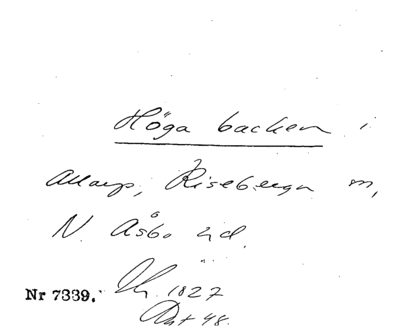 Höga backen i
Allarp, Riseberga sn,
N. Åsbo hd.
1827
Nr 7339.
Ant 48.